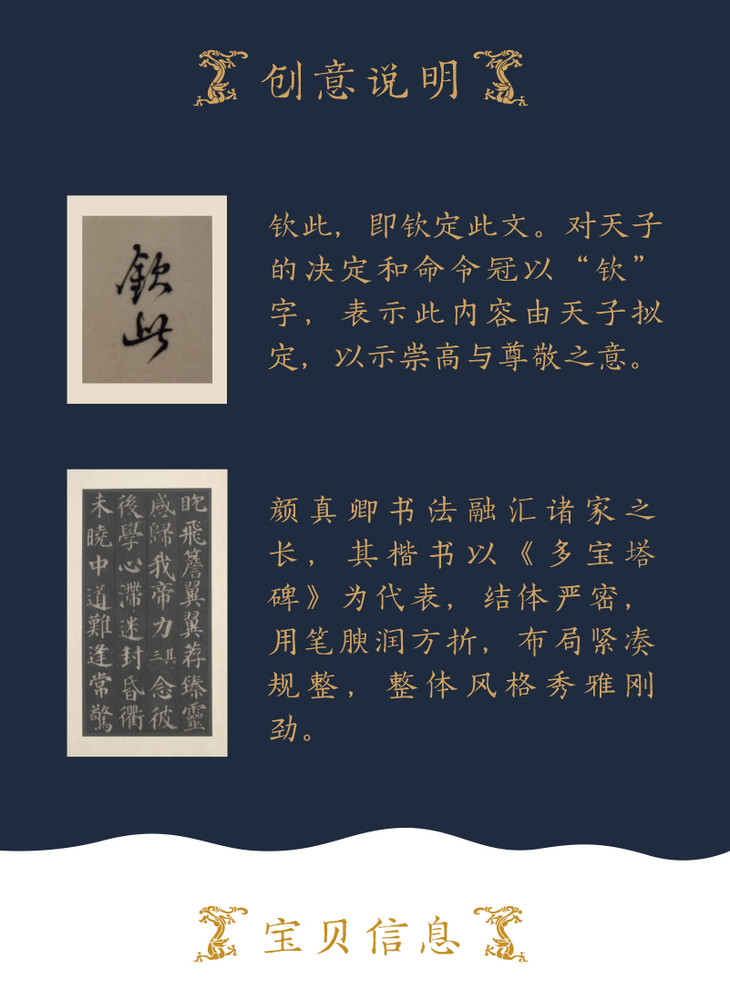 创意说明
钦
此
钦此，即钦定此文。对天子
的决定和命令冠以“钦”
字，表示此内容由天子拟
定，以示崇高与尊敬之意。
昡飛簷翼翼荐臻靈
感歸我帝力三其念彼
後學心滯迷封昏衢
未曉中道難逢常驚
颜真卿书法融汇诸家之
长，其楷书以《多宝塔
碑》为代表，结体严密，
用笔腴润方折，布局紧凑
规整，整体风格秀雅刚
劲。
宝贝信息